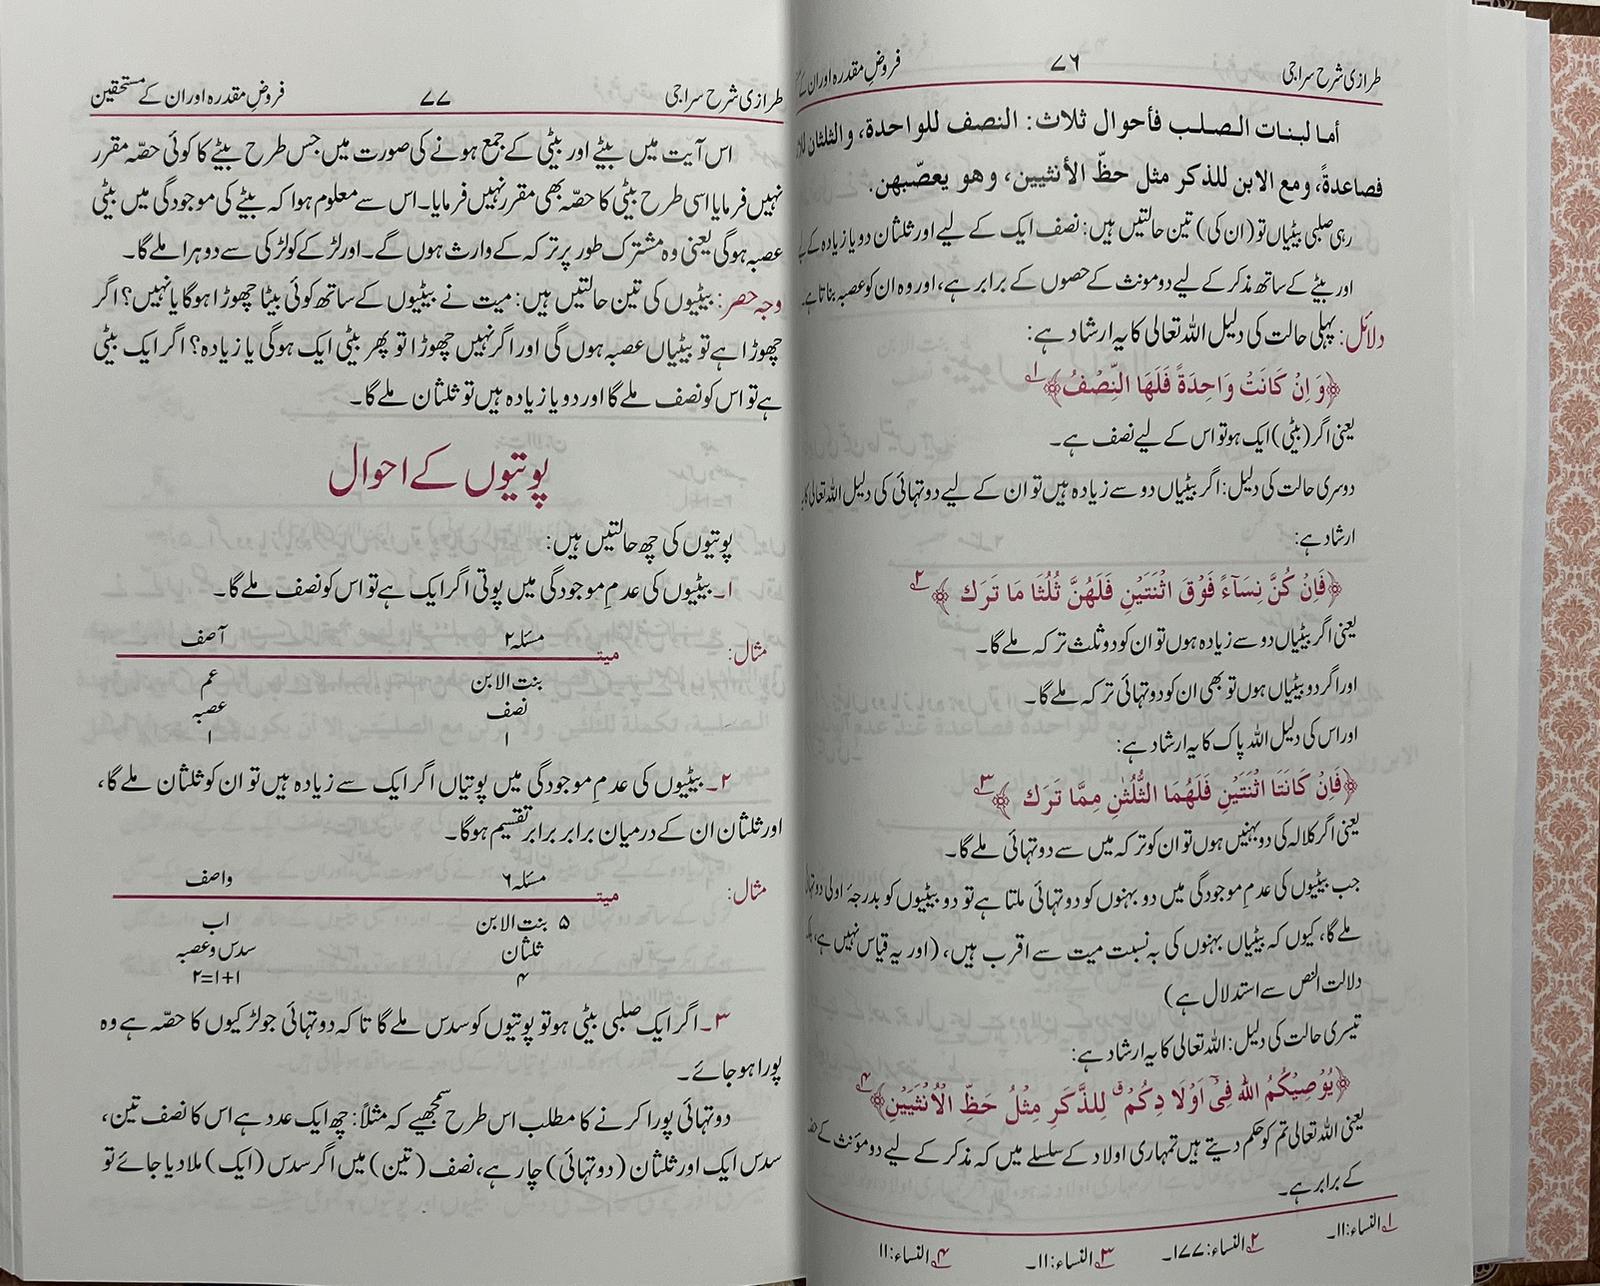 طرازی شرح سراجی ۷۶ فروض مقدرہ اور ان کے
أما لبنات الصلب فأحوال ثلاث: النصف للواحدة، والثلثان
فصاعدةً، ومع الابن للذكر مثل حظّ الأنثيين، وهو يعصّبهن.
رہی صلبی بیٹیاں تو (ان کی) تین حالتیں ہیں: نصف ایک کے لیے اور ثلثان دو یا زیادہ کے
اور بیٹے کے ساتھ مذکر کے لیے دو مونث کے حصوں کے برابر ہے، اور وہ ان کو عصبہ بناتا ہے۔
دلائل: پہلی حالت کی دلیل اللہ تعالی کا یہ ارشاد ہے:
﴿وَ اِنْ كَانَتْ وَاحِدَةً فَلَهَا النِّصْفُ﴾ ۱
یعنی اگر (بیٹی) ایک ہو تو اس کے لیے نصف ہے۔
دوسری حالت کی دلیل: اگر بیٹیاں دو سے زیادہ ہیں تو ان کے لیے دو تہائی کی دلیل اللہ تعالی کا
ارشاد ہے:
﴿فَاِنْ كُنَّ نِسَآءً فَوْقَ اثْنَتَيْنِ فَلَهُنَّ ثُلُثَا مَا تَرَكَ﴾ ۲
یعنی اگر بیٹیاں دو سے زیادہ ہوں تو ان کو دو ثلث ترکہ ملے گا۔
اور اگر دو بیٹیاں ہوں تو بھی ان کو دو تہائی ترکہ ملے گا۔
اور اس کی دلیل اللہ پاک کا یہ ارشاد ہے:
﴿فَاِنْ كَانَتَا اثْنَتَيْنِ فَلَهُمَا الثُّلُثٰنِ مِمَّا تَرَكَ﴾ ۳
یعنی اگر کلالہ کی دو بہنیں ہوں تو ان کو ترکہ میں سے دو تہائی ملے گا۔
جب بیٹیوں کی عدمِ موجودگی میں دو بہنوں کو دو تہائی ملتا ہے تو دو بیٹیوں کو بدرجۂ اولی
ملے گا، کیوں کہ بیٹیاں بہنوں کی بہ نسبت میت سے اقرب ہیں، (اور یہ قیاس نہیں ہے،
دلالت النص سے استدلال ہے)
تیسری حالت کی دلیل: اللہ تعالی کا یہ ارشاد ہے:
﴿يُوْصِيْكُمُ اللّٰهُ فِيْٓ اَوْلَادِكُمْ ۚ لِلذَّكَرِ مِثْلُ حَظِّ الْاُنْثَيَيْنِ﴾ ۴
یعنی اللہ تعالی تم کو حکم دیتے ہیں تمہاری اولاد کے سلسلے میں کہ مذکر کے لیے دو مؤنث کے
کے برابر ہے۔
۱ النساء: ۱۱۔ ۲ النساء: ۱۷۷۔ ۳ النساء: ۱۱۔ ۴ النساء: ۱۱
طرازی شرح سراجی ۷۷ فروض مقدرہ اور ان کے مستحقین
اس آیت میں بیٹے اور بیٹی کے جمع ہونے کی صورت میں جس طرح بیٹے کا کوئی حصّہ مقرر
نہیں فرمایا اسی طرح بیٹی کا حصّہ بھی مقرر نہیں فرمایا۔ اس سے معلوم ہوا کہ بیٹے کی موجودگی میں بیٹی
عصبہ ہوگی یعنی وہ مشترک طور پر ترکہ کے وارث ہوں گے۔ اور لڑکے کو لڑکی سے دوہرا ملے گا۔
وجہ حصر: بیٹیوں کی تین حالتیں ہیں: میت نے بیٹیوں کے ساتھ کوئی بیٹا چھوڑا ہوگا یا نہیں؟ اگر
چھوڑا ہے تو بیٹیاں عصبہ ہوں گی اور اگر نہیں چھوڑا تو پھر بیٹی ایک ہوگی یا زیادہ؟ اگر ایک بیٹی
ہے تو اس کو نصف ملے گا اور دو یا زیادہ ہیں تو ثلثان ملے گا۔
پوتیوں کے احوال
پوتیوں کی چھ حالتیں ہیں:
۱۔ بیٹیوں کی عدمِ موجودگی میں پوتی اگر ایک ہے تو اس کو نصف ملے گا۔
مثال: میت مسئلہ۲ آصف
بنت الابن عم
نصف عصبہ
۱ ۱
۲۔ بیٹیوں کی عدمِ موجودگی میں پوتیاں اگر ایک سے زیادہ ہیں تو ان کو ثلثان ملے گا،
اور ثلثان ان کے درمیان برابر برابر تقسیم ہوگا۔
مثال: میت مسئلہ۶ واصف
۵ بنت الابن اب
ثلثان سدس وعصبہ
۴ ۱+۱=۲
۳۔ اگر ایک صلبی بیٹی ہو تو پوتیوں کو سدس ملے گا تاکہ دو تہائی جو لڑکیوں کا حصّہ ہے وہ
پورا ہو جائے۔
دو تہائی پورا کرنے کا مطلب اس طرح سمجھیے کہ مثلاً: چھ ایک عدد ہے اس کا نصف تین،
سدس ایک اور ثلثان (دو تہائی) چار ہے، نصف (تین) میں اگر سدس (ایک) ملا دیا جائے تو